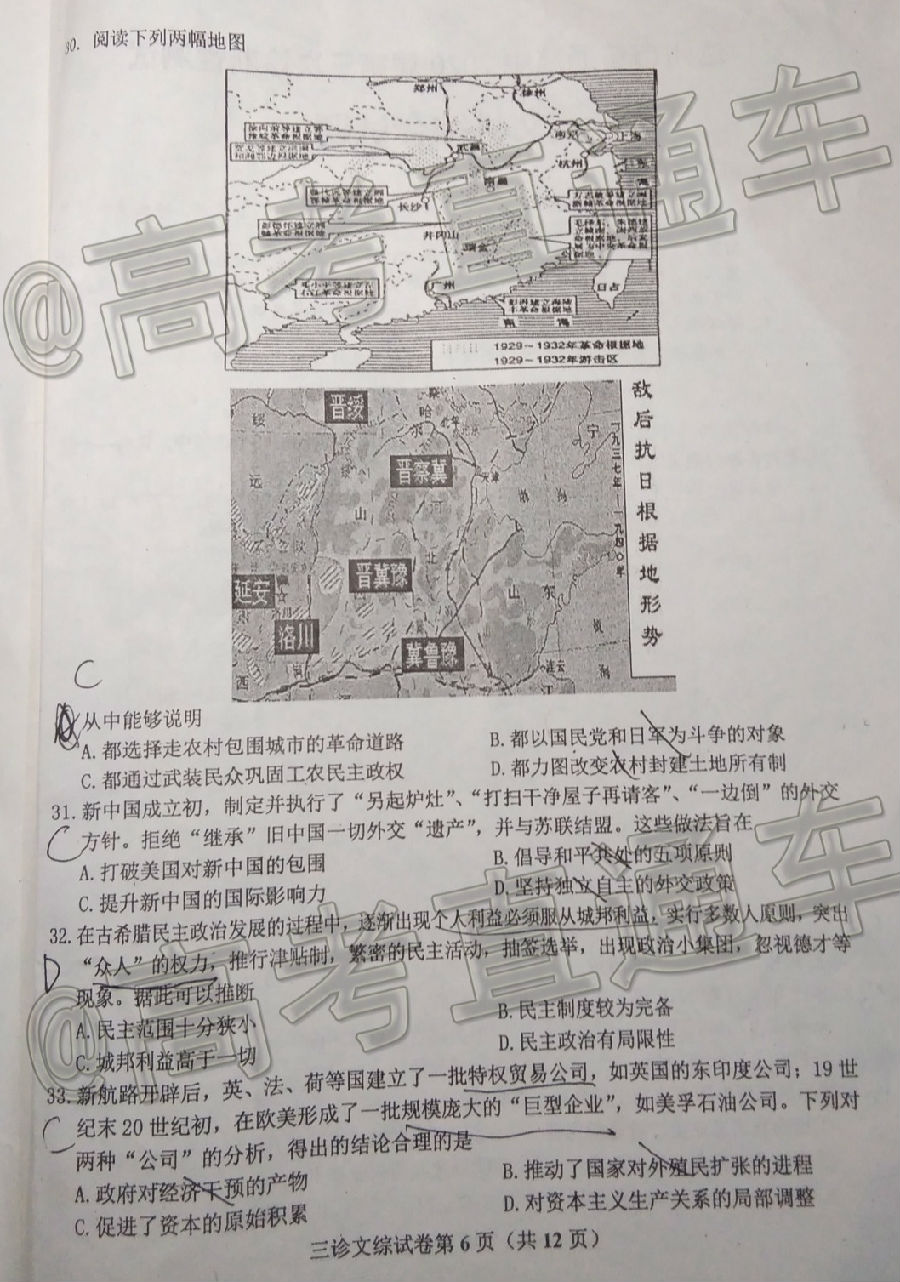 30. 阅读下列两幅地图
郑州
徐州
南京
上海
武昌
杭州
南昌
长沙
井冈山
瑞金
广州
日占
南 海
1929~1932年革命根据地
1929~1932年游击区
敌后抗日根据地形势
一九三七年—一九四〇年
晋绥
晋察冀
晋冀豫
延安
洛川
冀鲁豫
绥
远
察
哈
尔
天津
宁
山
河
北
山 东
渤 海
连云
C
从中能够说明
A. 都选择走农村包围城市的革命道路
B. 都以国民党和日军为斗争的对象
C. 都通过武装民众巩固工农民主政权
D. 都力图改变农村封建土地所有制
31. 新中国成立初，制定并执行了“另起炉灶”、“打扫干净屋子再请客”、“一边倒”的外交
方针。拒绝“继承”旧中国一切外交“遗产”，并与苏联结盟。这些做法旨在
C
A. 打破美国对新中国的包围
B. 倡导和平共处的五项原则
C. 提升新中国的国际影响力
D. 坚持独立自主的外交政策
32. 在古希腊民主政治发展的过程中，逐渐出现个人利益必须服从城邦利益，实行多数人原则，突出
“众人”的权力，推行津贴制，繁密的民主活动，抽签选举，出现政治小集团，忽视德才等
D
现象。据此可以推断
A. 民主范围十分狭小
B. 民主制度较为完备
C. 城邦利益高于一切
D. 民主政治有局限性
33. 新航路开辟后，英、法、荷等国建立了一批特权贸易公司，如英国的东印度公司；19世
纪末20世纪初，在欧美形成了一批规模庞大的“巨型企业”，如美孚石油公司。下列对
C
两种“公司”的分析，得出的结论合理的是
A. 政府对经济干预的产物
B. 推动了国家对外殖民扩张的进程
C. 促进了资本的原始积累
D. 对资本主义生产关系的局部调整
三诊文综试卷第6页（共12页）
@高考直通车
@高考直通车